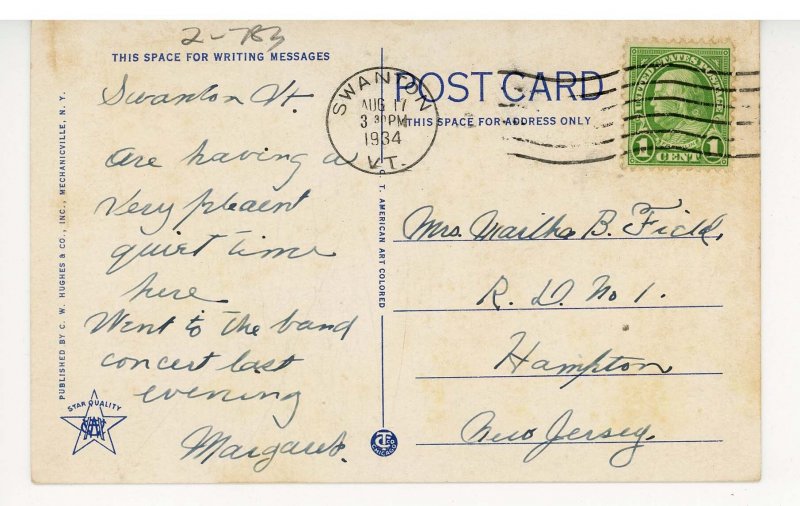 2-783
THIS SPACE FOR WRITING MESSAGES
Swanton Vt.
Are having a
very pleaent
quiet time
here
Went to the band
concert last
evening
Margaret.
PUBLISHED BY C. W. HUGHES & CO., INC., MECHANICVILLE, N. Y.
STAR QUALITY
C. T. AMERICAN ART COLORED
CHICAGO
SWANTON
AUG 17
3 30 PM
1934
VT.
POST CARD
THIS SPACE FOR ADDRESS ONLY
UNITED STATES POSTAGE
1 CENT 1
Mrs. Martha B. Field,
R. D. No 1.
Hampton
New Jersey.